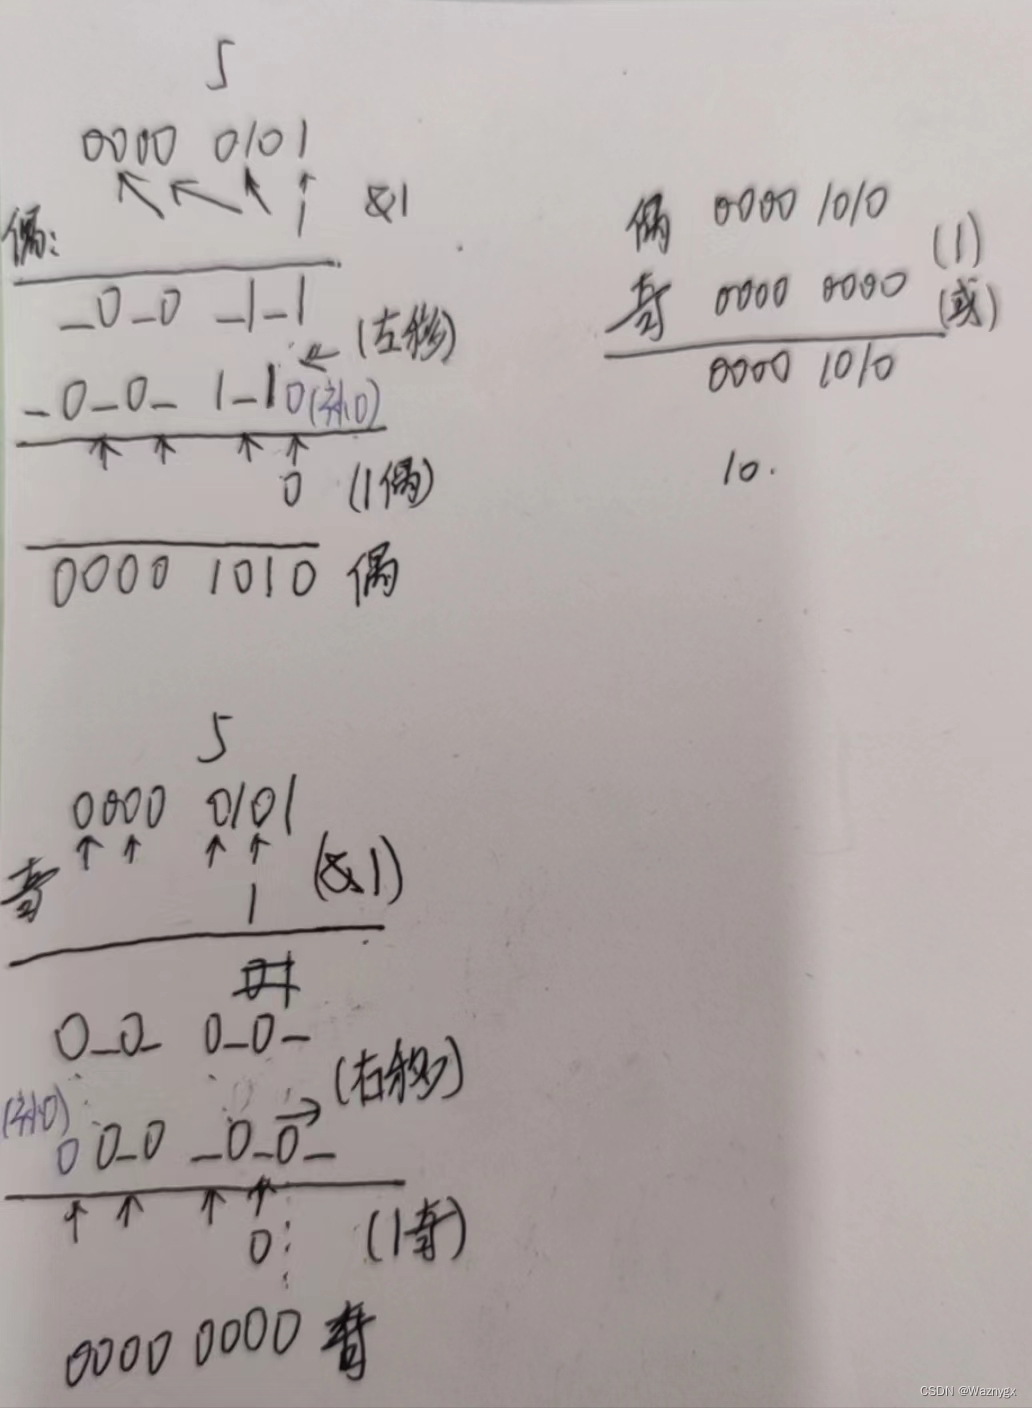 5
0000 0101
1 &1
偶:
_0_0 _1_1
(左移)
_0_0_ 1_10(补0)
0 (1偶)
0000 1010 偶
偶 0000 1010
(1)
奇 0000 0000 (或)
0000 1010
10.
5
0000 0101
奇 1 (&1)
0_0_ 0_0_
(右移)
(补0)
0 0_0 _0_0_
0 (1奇)
0000 0000 奇
CSDN @Waznygx